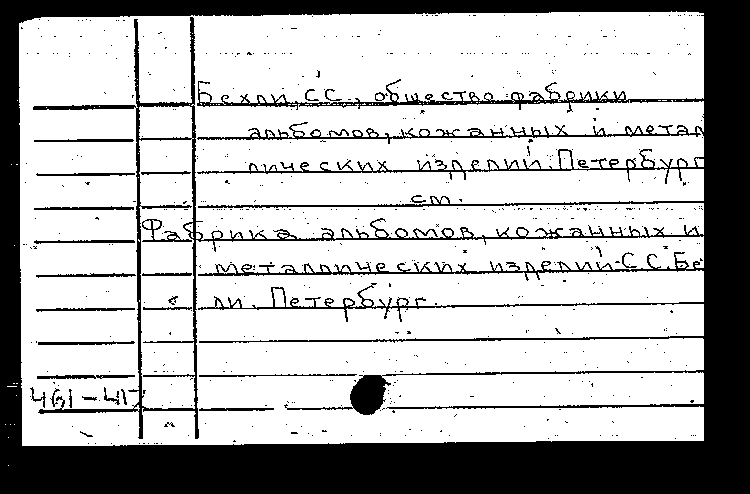 Бехли, С.С., общество фабрики
альбомов, кожанных и метал
лических изделий. Петербург
см.
Фабрика альбомов, кожанных и
металлических изделий С.С. Бе
ли. Петербург.